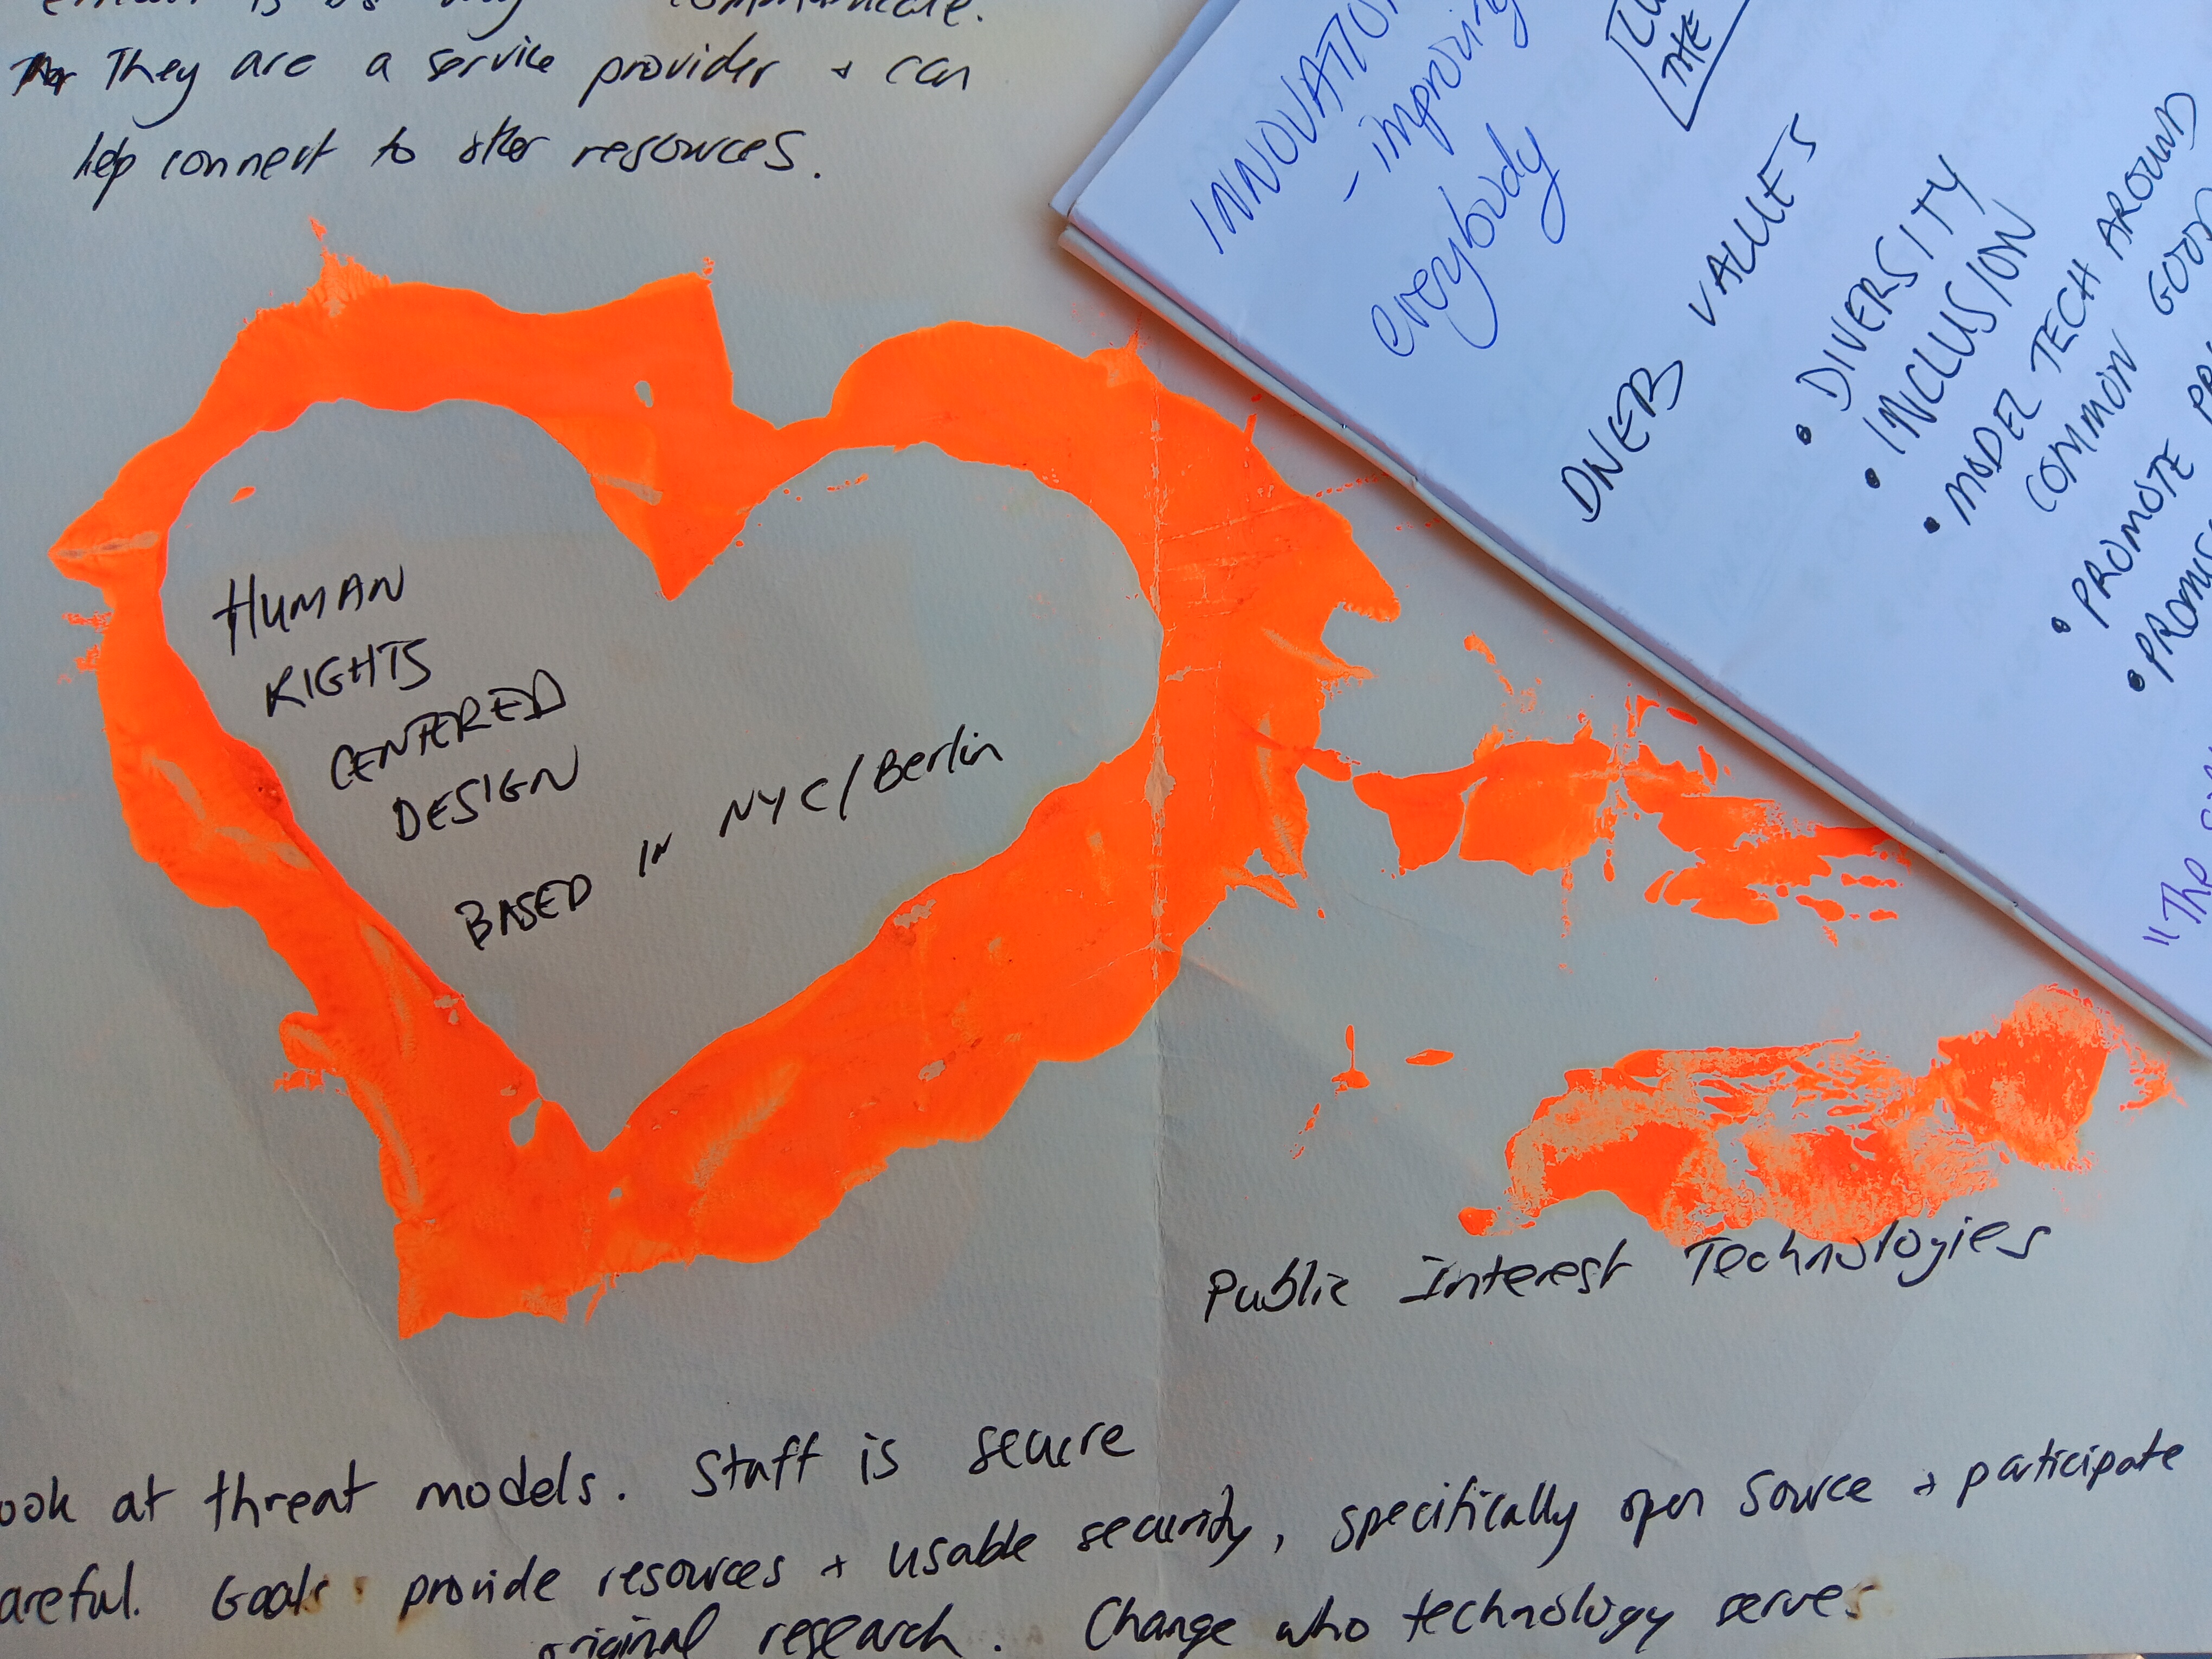 They are a service provider + can
help connect to other resources.
HUMAN
RIGHTS
CENTERED
DESIGN
BASED IN NYC/Berlin
Public Interest Technologies
ook at threat models. Staff is secure
areful. Goals: provide resources + usable security, specifically open source + participate
original research. Change who technology serves
INNOVATION
- improving
everybody
THE
DWEB VALUES
• DIVERSITY
• INCLUSION
• MODEL TECH AROUND
COMMON GOOD
• PROMOTE
"The